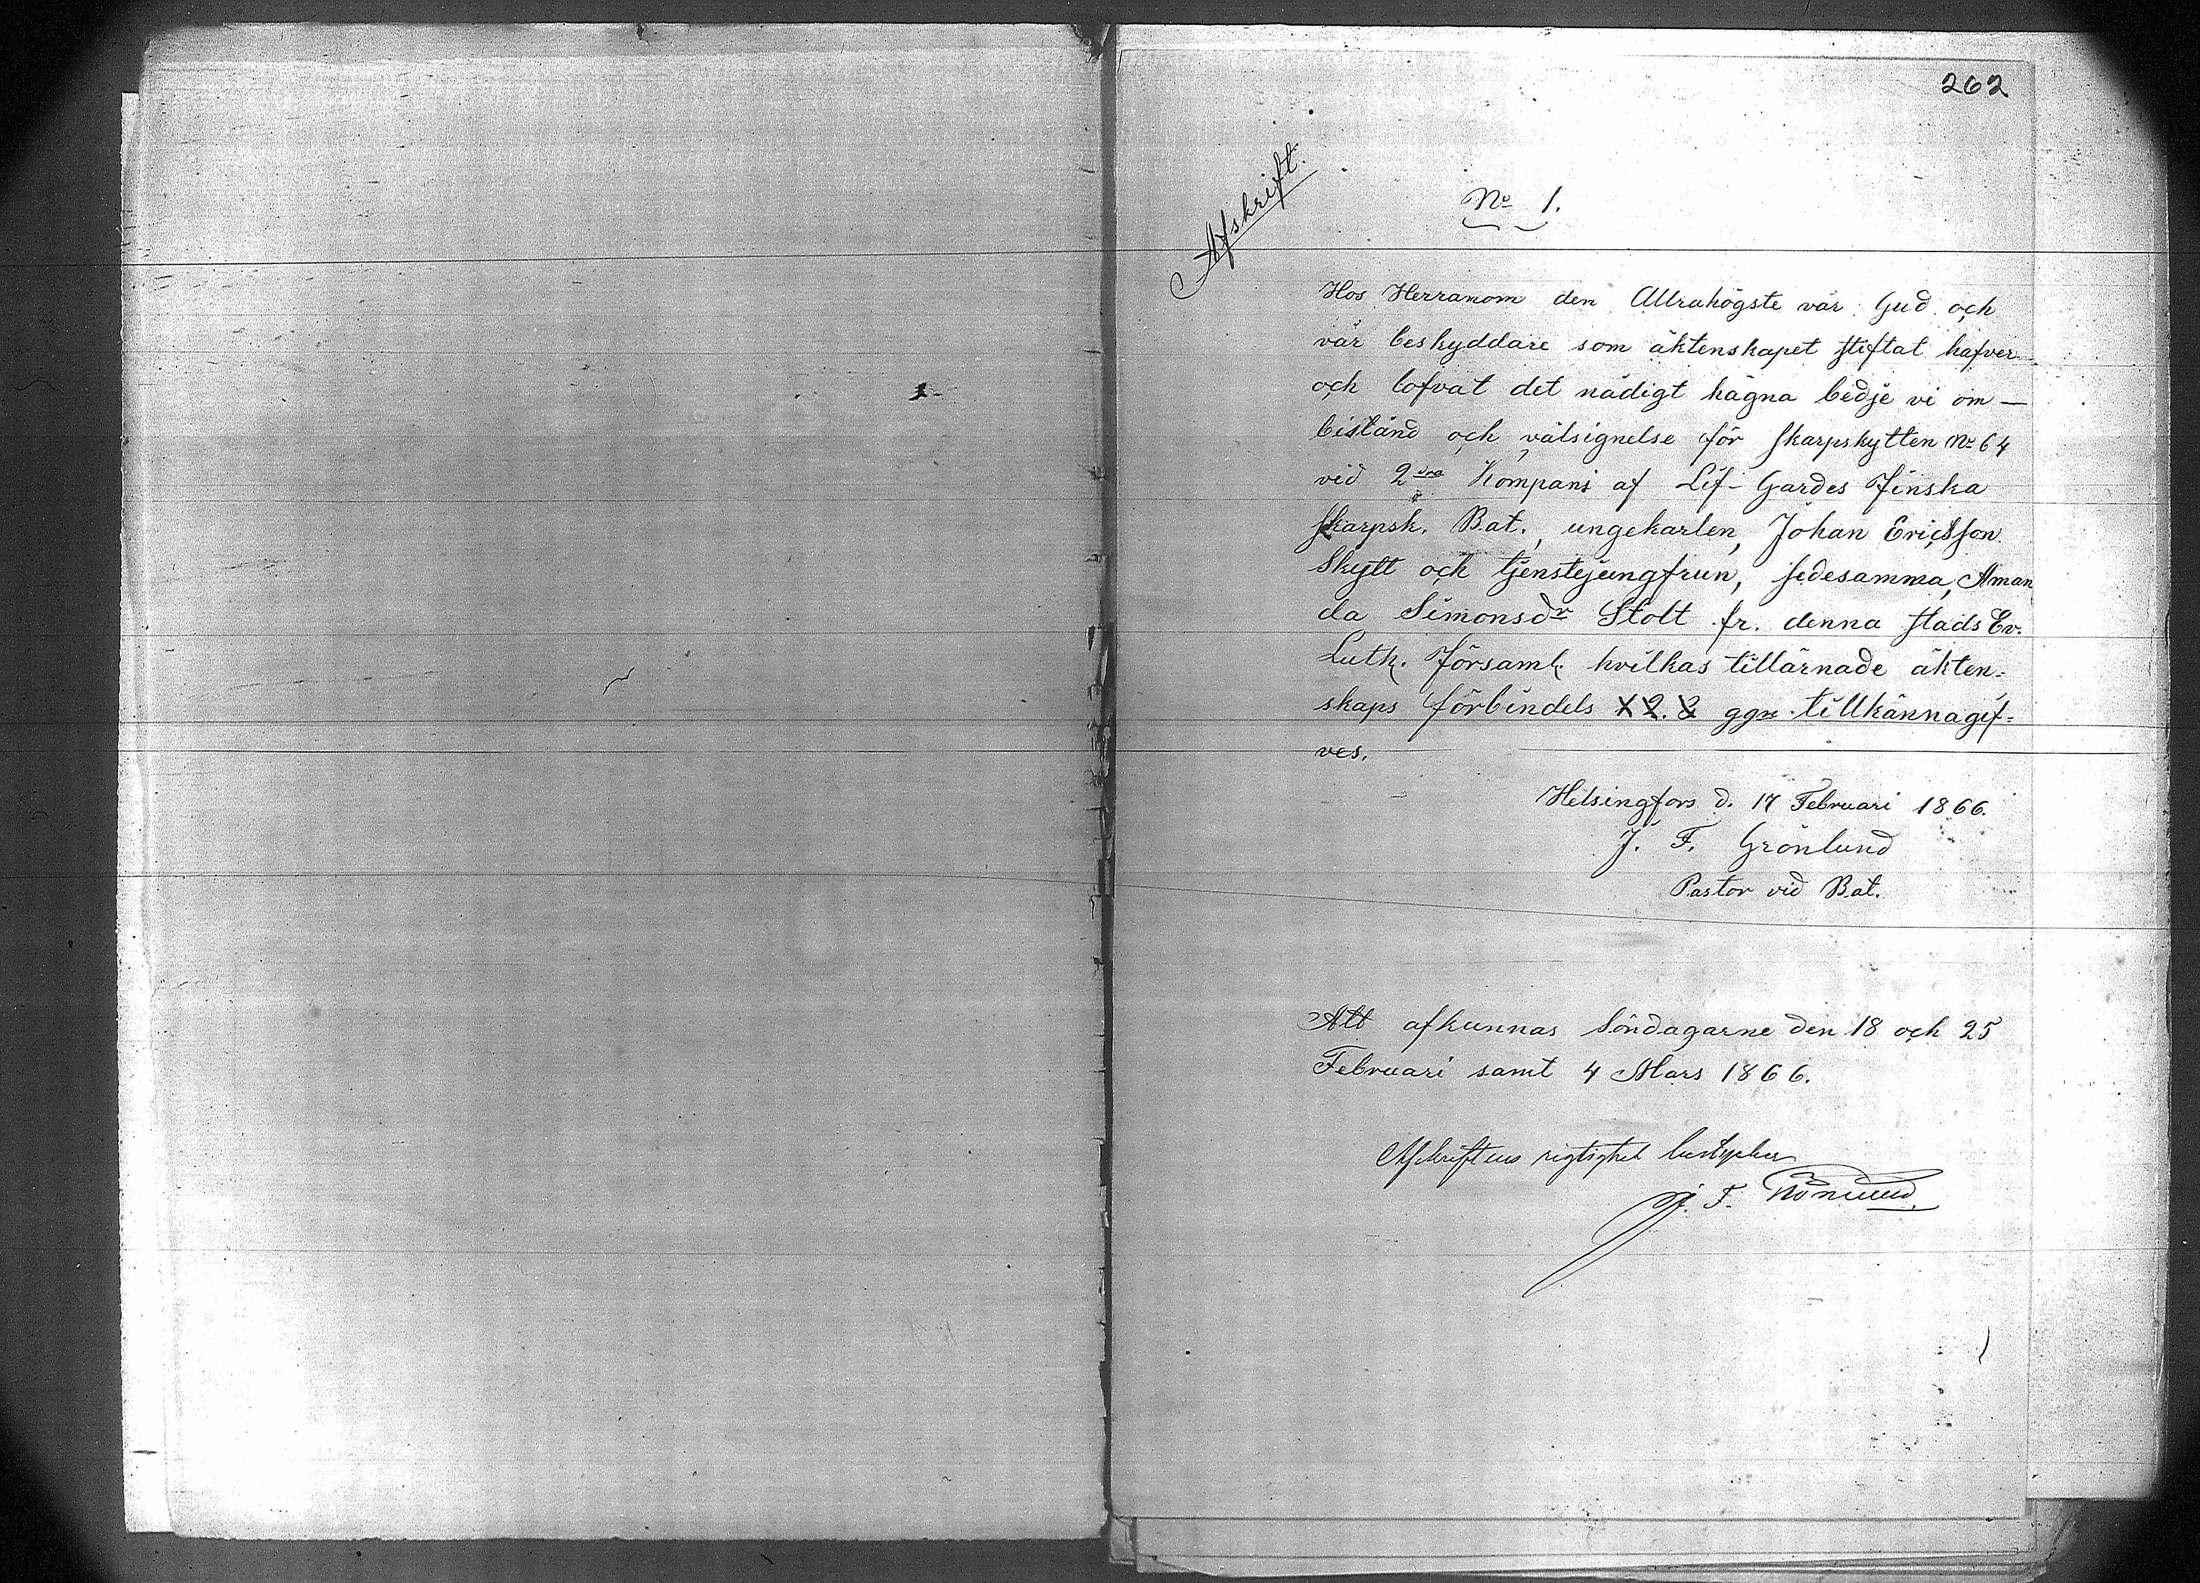 262
Afskrift.
No 1.
Hos Herranom den Allrahögste vår Gud och
vår beskyddare som äktenskapet stiftat hafver
och lofvat det nådigt hägna bedje vi om —
bistånd och välsignelse för skarpskytten No 64
vid 2dra Kompani af Lif-Gardes Finska
skarpsk. Bat., ungekarlen, Johan Ericsson
Skytt och tjenstejungfrun, sedesamma, Aman
da Simonsdr Stolt fr. denna stads Ev.
Luth. Församl. hvilkas tillärnade äkten=
skaps förbindels 1. 2. 3 ggr tillkännagif=
ves.
Helsingfors d. 17 Februari 1866.
J. F. Grönlund
Pastor vid Bat.
Att afkunnas Söndagarne den 18 och 25
Februari samt 4 Mars 1866.
Afskriftens rigtighet
J. F. Grönlund.